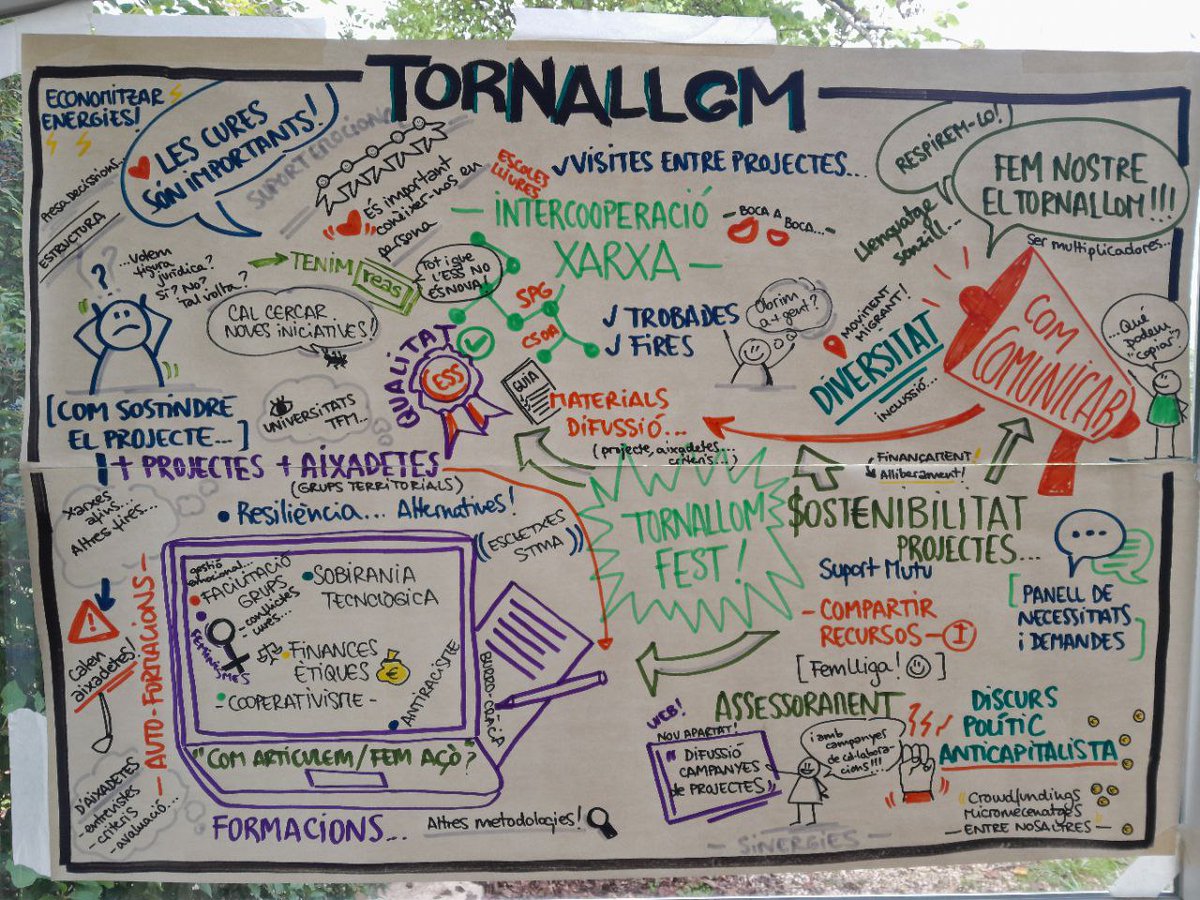 TORNALLOM
ECONOMITZAR
ENERGIES!
LES CURES
SÓN IMPORTANTS!
SUPORT EMOCIONAL
PRESA DECISIONS...
ESTRUCTURA
És important
conèixer-nos en
persona
ESCOLES
LLIURES
✓VISITES ENTRE PROJECTES...
- INTERCOOPERACIÓ
XARXA -
- BOCA A
BOCA... -
RESPIREM-LO!
FEM NOSTRE
EL TORNALLOM!!!
Llenguatge
senzill...
Ser multiplicadores...
?
?
...Volem
figura
jurídica?
SÍ? NO?
Tal volta?
→ TENIM reas
Tot i que
L'ESS NO
ÉS NOVA!
CAL CERCAR
NOVES INICIATIVES!
SPG
CSOA
✓ TROBADES
✓ FIRES
Obrim
a + gent?
MOVIMENT
MIGRANT!
DIVERSITAT
INCLUSSIÓ...
COM
COMUNICAR
...Què
podem
"copiar?
QUALITAT
ESS
GUIA
MATERIALS
DIFUSSIÓ...
(projecte, aixadetes...
criteris...)
[COM SOSTINDRE
EL PROJECTE...]
UNIVERSITATS
TFM...
+ PROJECTES + AIXADETES
(GRUPS TERRITORIALS)
• Resiliència... Alternatives!
FINANÇAMENT!
Alliberament!
xarxes
afins...
Altres fires...
((ESCLETXES
STMA))
TORNALLOM
FEST!
$OSTENIBILITAT
PROJECTES...
Suport Mutu
- COMPARTIR
RECURSOS -
[FemLliga! ☺]
[PANELL DE
NECESSITATS
i DEMANDES]
- AUTO-FORMACIONS -
Calen
aixadetes!
D'AIXADETES
- entrevistes
- criteris
- avaluació...
gestió
emocional...
• FACILITACIÓ
GRUPS
- conflictes
- cures...
• FEMINISMES
• SOBIRANIA
TECNOLÒGICA
• FINANCES
ÈTIQUES
€
• COOPERATIVISTE -
• ANTIRACISTE
BUROCRÀCIA
"COM ARTICULEM/FEM AÇÒ?
FORMACIONS...
Altres metodologies!
ASSESSORAMENT
WEB!
NOU APARTAT!
"DIFUSSIÓ
CAMPANYES
de PROJECTES"
i amb
campanyes
de col·labora-
cions!!!
DISCURS
POLÍTIC
ANTICAPITALISTA
Crowdfundings
Micromecenatges
- ENTRE NOSALTRES -
- SINERGIES -